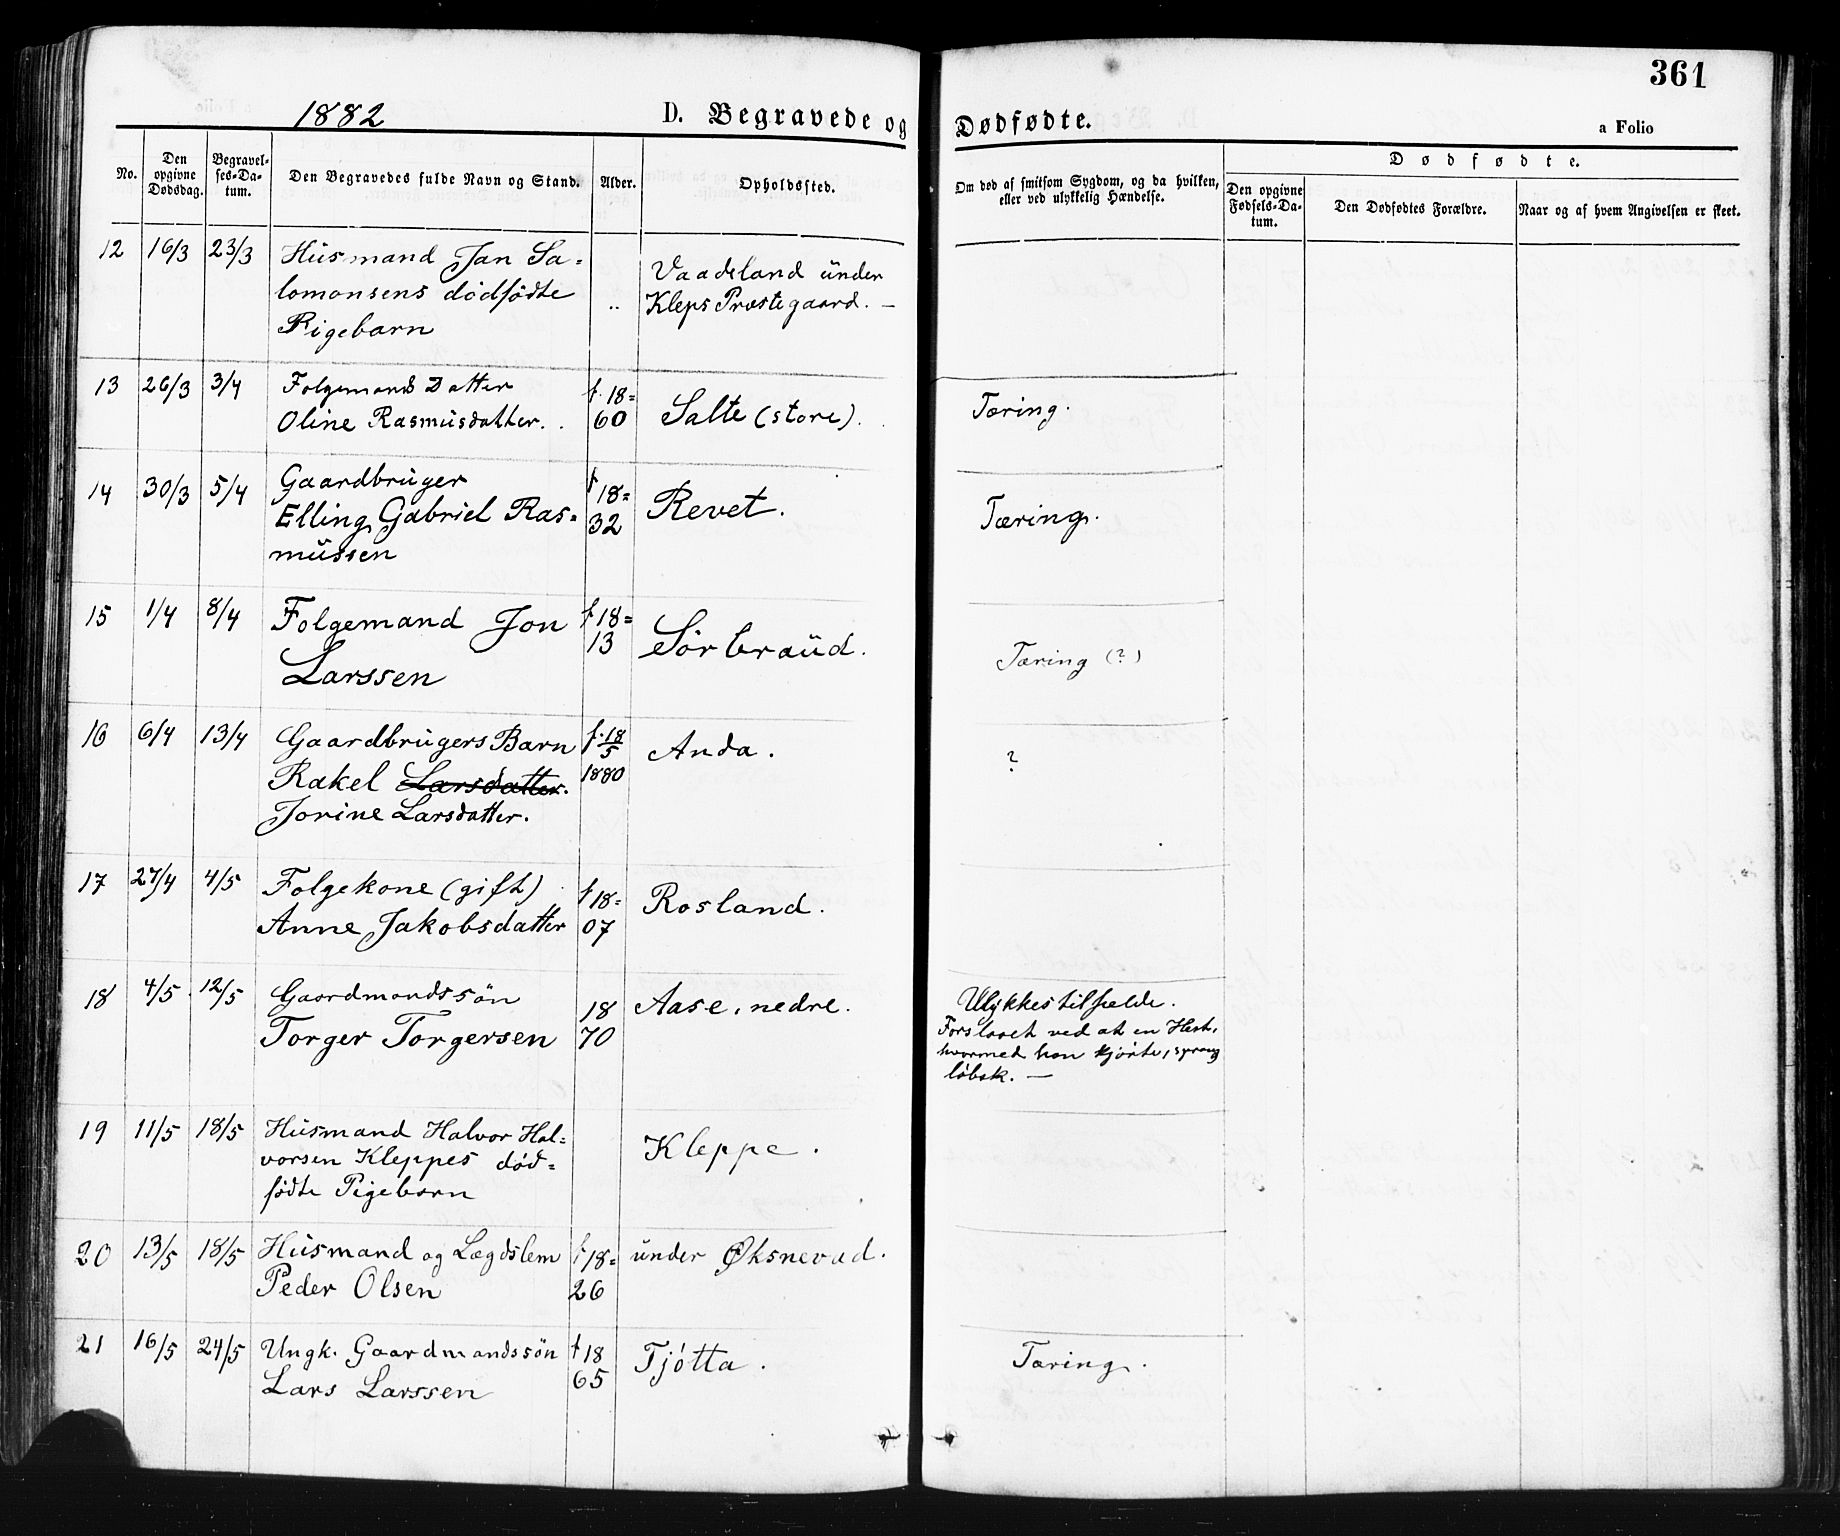 361
1882
D. Begravede og Dødfødte.
a Folio
No.
Den opgivne Dødsdag.
Begravelses-Datum.
Den Begravedes fulde Navn og Stand.
Alder.
Opholdssted.
Om død af smitsom Sygdom, og da hvilken,
eller ved ulykkelig Hændelse.
Dødfødte.
Den opgivne Fødsels-Datum.
Den Dødfødtes Forældre.
Naar og af hvem Angivelsen er skeet.
12 16/3 23/3 Husmand Jan Sa=
lomonsens dödfödte
Pigebarn
..
Vaadeland under
Kleps Præstegaard. —
13 26/3 3/4 Folgemands Datter
Oline Rasmusdatter.
f. 18=
60
Salte (store).
Tæring.
14 30/3 5/4 Gaardbruger
Elling Gabriel Ras=
mussen
f 18=
32
Revet.
Tæring.
15 1/4 8/4 Folgemand Jon
Larssen
f 18=
13
Sörbraud.
Tæring (?)
16 6/4 13/4 Gaardbrugers Barn
Rakel Larsdatter.
Jorine Larsdatter.
f. 18/5
1880
Anda.
?
17 27/4 4/5 Folgekone (gift)
Anne Jakobsdatter
f 18=
07
Rosland.
18 4/5 12/5 Gaardmandssön
Torger Torgersen
18
70
Aase, nedre.
Ulykkestilfælde.
Forslaaet ved at en Hest,
hvormed han kjörte, sprang
löbsk. —
19 11/5 18/5 Husmand Halvor Hal=
vorsen Kleppes död=
födte Pigebarn
Kleppe.
20 13/5 18/5 Husmand og Lægdslem
Peder Olsen
f 18=
26
under Øksnevad.
21 16/5 24/5 Ungk. Gaardmandssön
Lars Larssen
f 18
65
Tjötta.
Tæring.